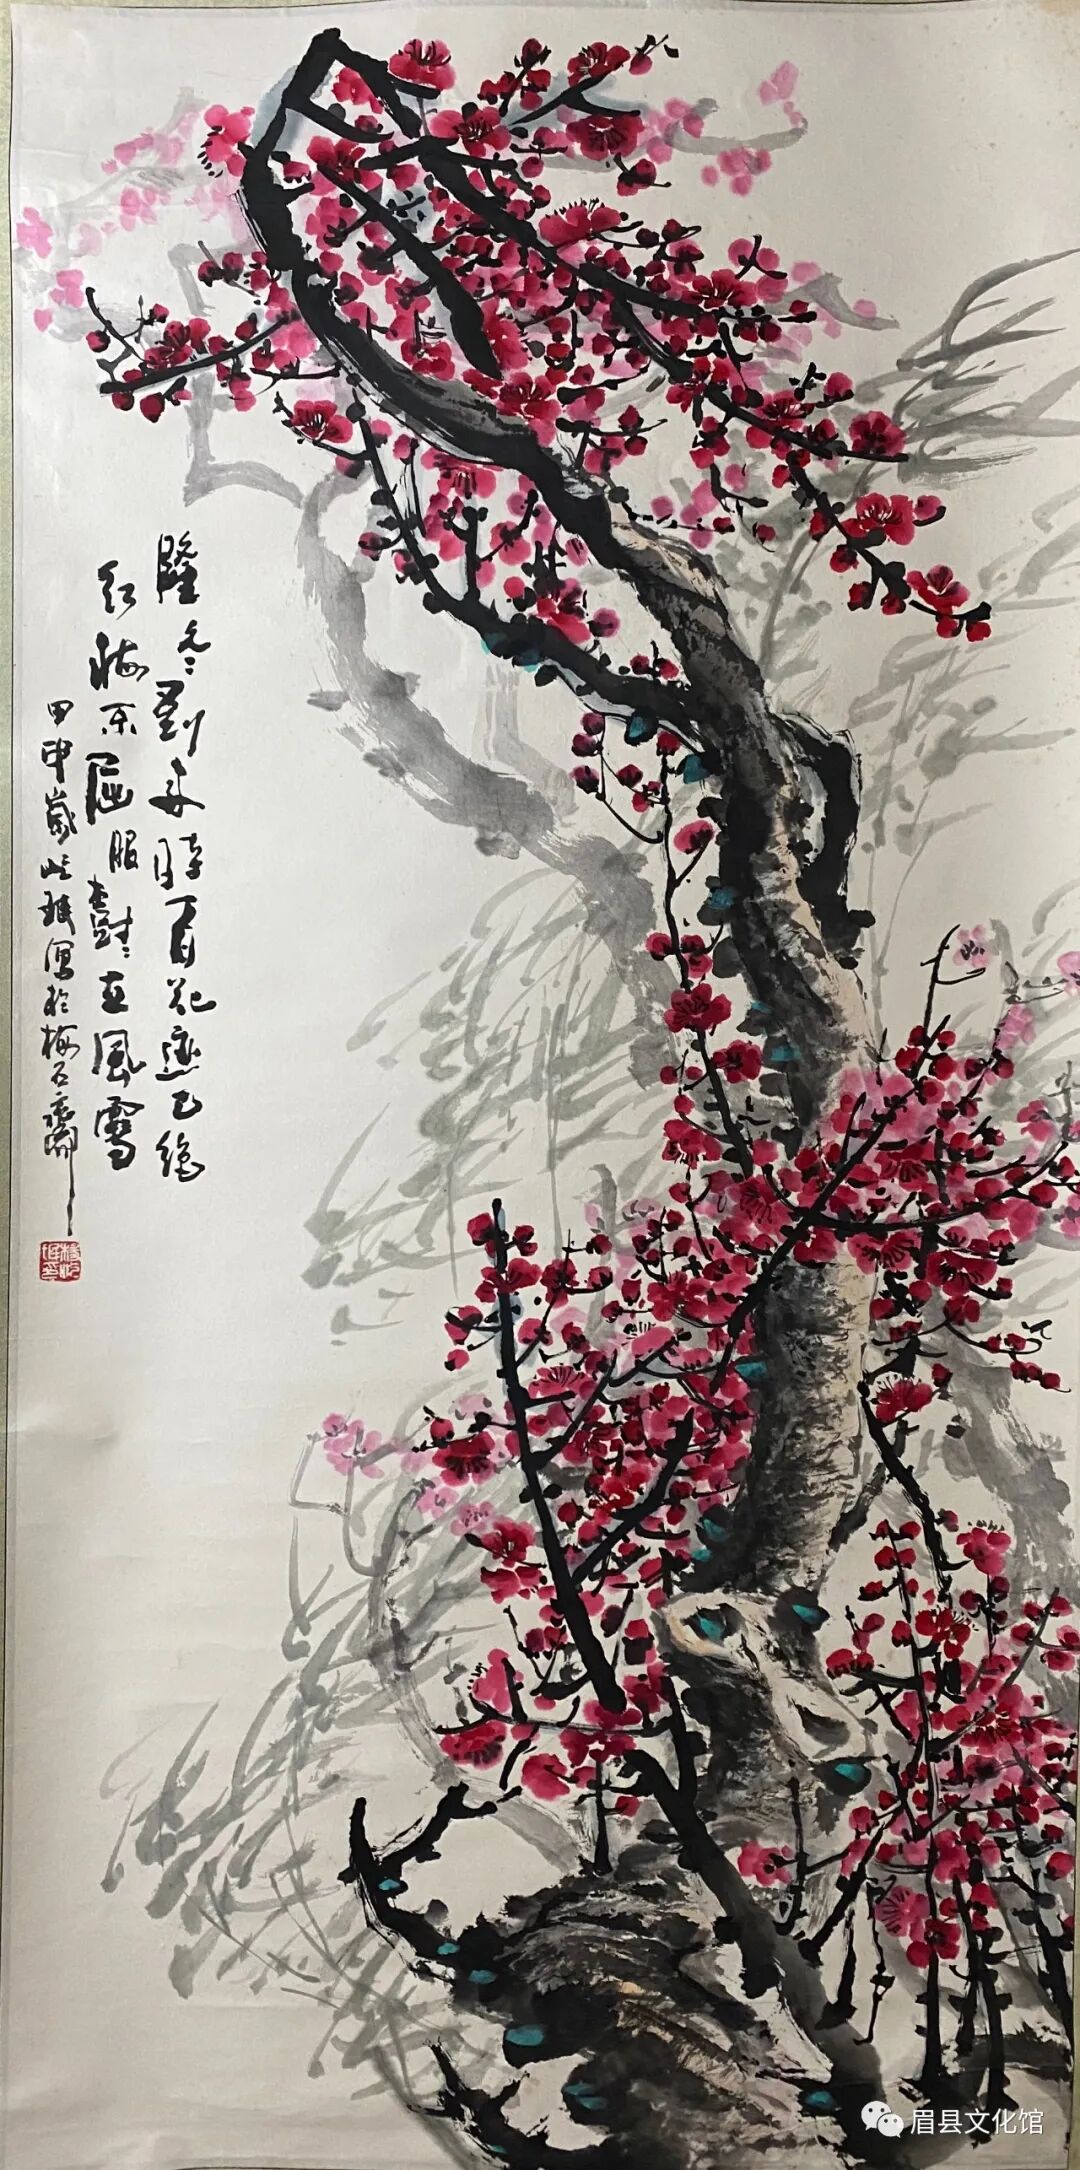 隆冬到来时百花迹已绝
红梅不屈服树树立风雪
甲申岁 写於梅石斋
眉县文化馆